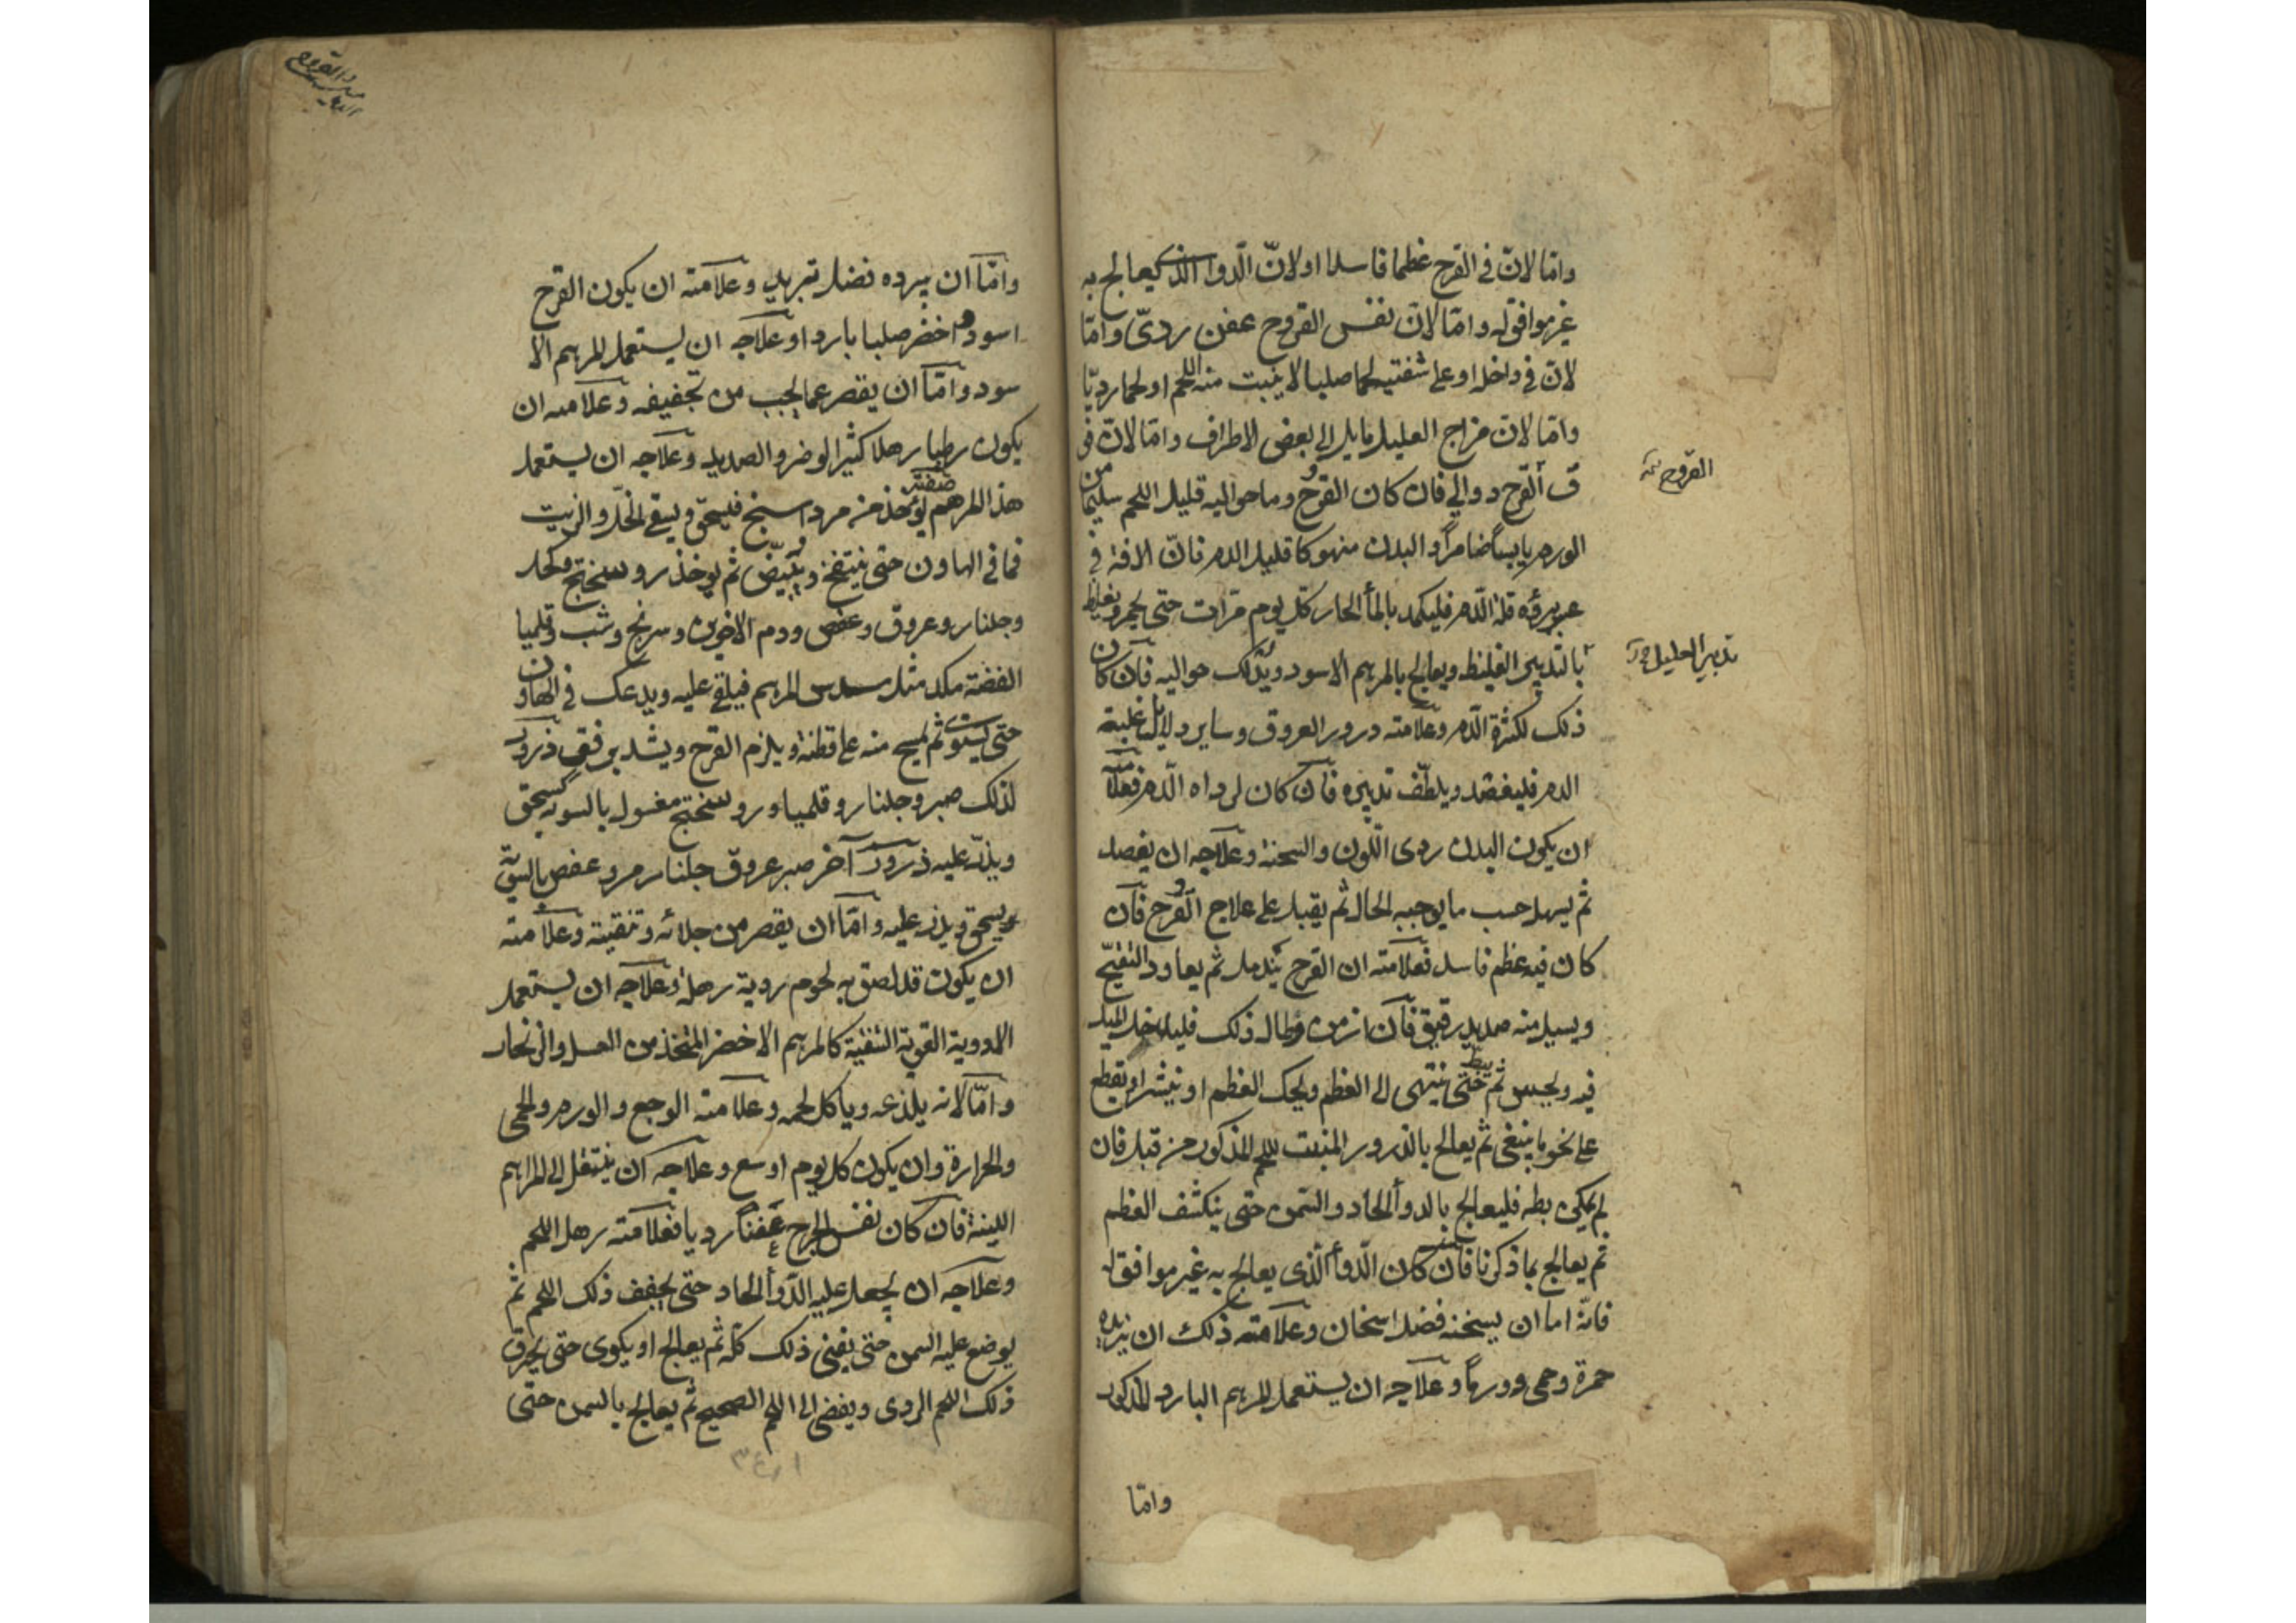 واما لان في القرح عظما فاسدا او لان الدوا الذي يعالج به
غير موافق له واما لان نفس القروح عفن ردى واما
لان في داخله او على شفتيه لحما صلبا لا ينبت منه اللحم او لحما رديا
واما لان مزاج العليل مايل الى بعض الاطراف واما لان فى
ق القرح دوالي فان كان القرح وما حواليه قليل اللحم سليما من
القروح
الورم يابسا ضامرا والبدن منهوكا قليل الدم فان الافة في
عسر برؤه قلة الدم فليكمد بالمأ الحار كل يوم مرات حتى يحمر ويغلظ
تدبير العليل
بالتدبير الغليظ ويعالج بالمرهم الاسود ويدلك حواليه فان كان
ذلك لكثرة الدم وعلامته درور العروق وساير دلايل غلبة
الدم فليفصد ويلطف تدبيره فان كان لرداه الدم فعلامته
ان يكون البدن ردى اللون والسحنة وعلاجه ان يفصد
ثم يسهل حسب ما يوجبه الحال ثم يقبل على علاج القرح فان
كان فيه عظم فاسد فعلامته ان القرح يندمل ثم يعاود التقيح
ويسيل منه صديد رقيق فان ازمن وطال ذلك فليدخل الميل
فيه ويجس ثم يبط حتى ينتهى الى العظم ويحك العظم او ينشر او يقطع
على نحو ما ينبغى ثم يعالج بالذرور المنبت للحم المذكور من قبل فان
لم يمكن بطه فليعالج بالدوأ الحاد والسمن حتى ينكشف العظم
ثم يعالج بما ذكرنا فان كان الدوأ الذى يعالج به غير موافق له
فانه اما ان يسخنه فضل اسخان وعلامته ذلك ان يزيده
حمرة وحمى وورما وعلاجه ان يستعمل المرهم البارد المذكور
واما
واما ان يبرده فضل تبريد وعلامته ان يكون القرح
اسود او اخضر صلبا باردا وعلاجه ان يستعمل المرهم الا
سود واما ان يقصر عما يجب من تجفيفه وعلامته ان
يكون رطبا رهلا كثير الوضر والصديد وعلاجه ان يستعمل
هذ المرهم صفته يؤخذ منه مرداسنج فيسحق ويسقى الخل والزيت
فما في الهاون حتى ينتفخ ويبيض ثم يوخذ روسختج محلد
وجلنار وعروق وعفص ودم الاخوين وسرنج وشب وقليميا
الفضة مكد مثل سدس المرهم فيلقى عليه ويدعك في الهاون
حتى يستوى ثم يمسح منه على قطنة ويلزم القرح ويشد برفق ذرور
لذلك صبر وجلنار وقليميا وروسختج مغسول بالسويه يسحق
ويذر عليه ذرور آخر صبر عروق جلنار مر وعفص بالسوية
يسحق ويذر عليه واما ان يقصر من جلائه وتنقيته وعلامته
ان يكون قد لصق به لحوم ردية رهلة وعلاجه ان يستعمل
الادوية القوية التنقية كالمرهم الاخضر المتخذ من العسل والزنجار
واما لانه يلذعه وياكل لحمه وعلامته الوجع والورم والحمى
والحرارة وان يكون كل يوم اوسع وعلاجه ان ينتقل الى المراهم
اللينة فان كان نفس الجرح عفنا رديا فعلامته رهل اللحم
وعلاجه ان يجعل عليه الدوأ الحاد حتى يجفف ذلك اللحم ثم
يوضع عليه السمن حتى يفنى ذلك كله ثم يعالج او يكوى حتى يحرق
ذلك اللحم الردى ويفضى الى اللحم الصحيح ثم يعالج بالسمن حتى